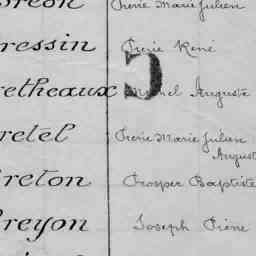 Pierre Marie Julien
ressin Pierre René
retheaux Michel Auguste
retel Pierre Marie Julien
Auguste
reton Prosper Baptiste
reyon Joseph Pierre